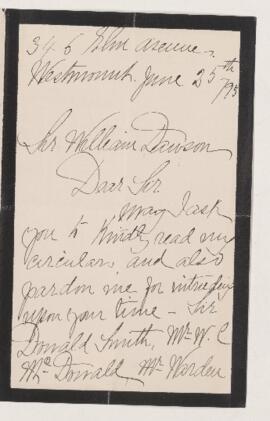 346 Elm Avenue -
Westmount June 25th /95
Sir William Dawson
Dear Sir
May I ask
you to Kindly read my
circular, and also
pardon me for intruding
upon your time - Sir
Donald Smith, Mr. W. C
McDonald Mr Warden